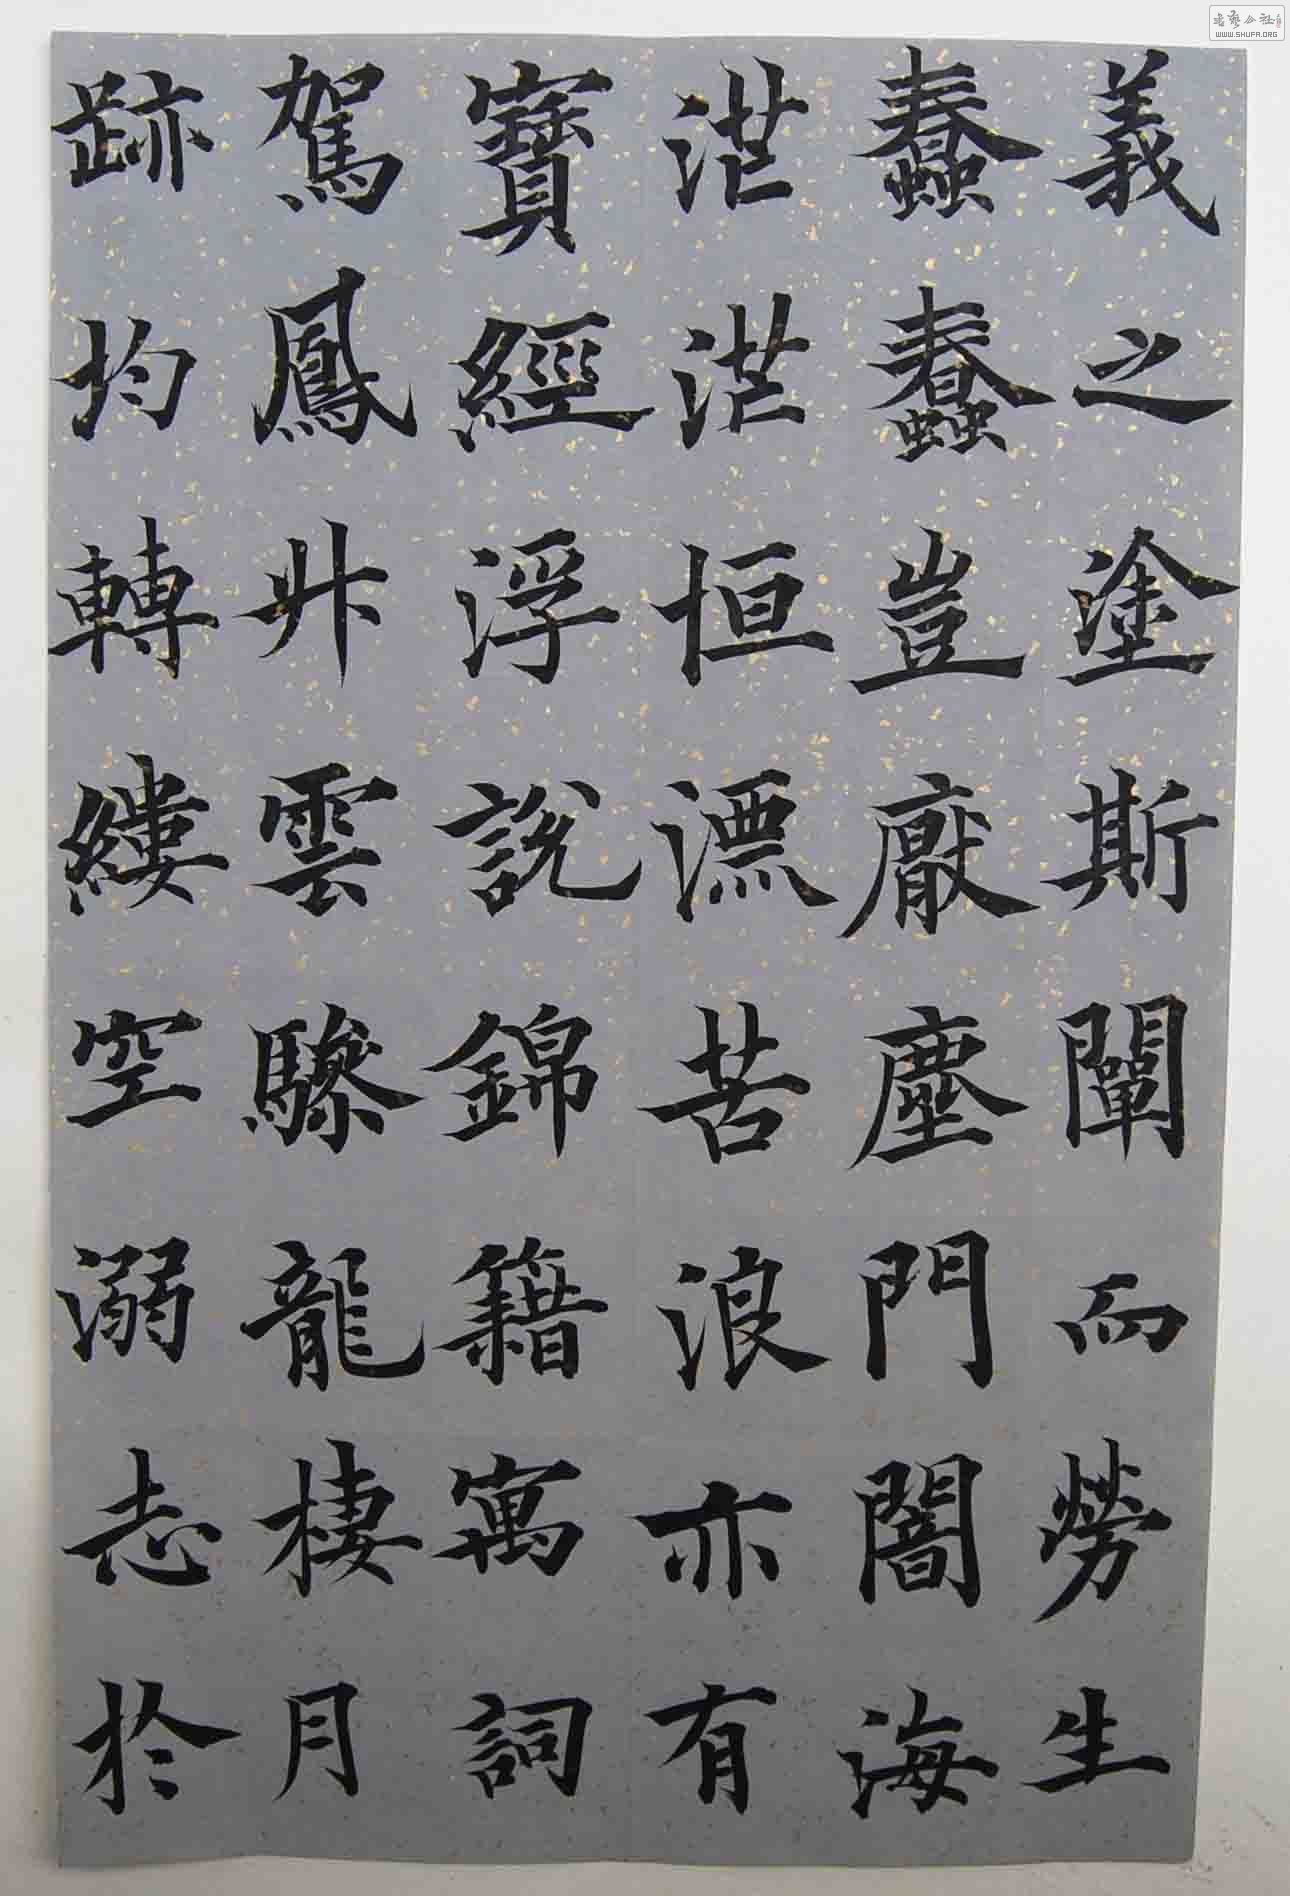 義之塗斯闡而勞生
蠢蠢豈厭塵門闇海
茫茫恒漂苦浪亦有
寶經浮說錦籍寓詞
駕鳳升雲驂龍棲月
跡均轉縷空溺志於
書藝公社
WWW.SHUFA.ORG